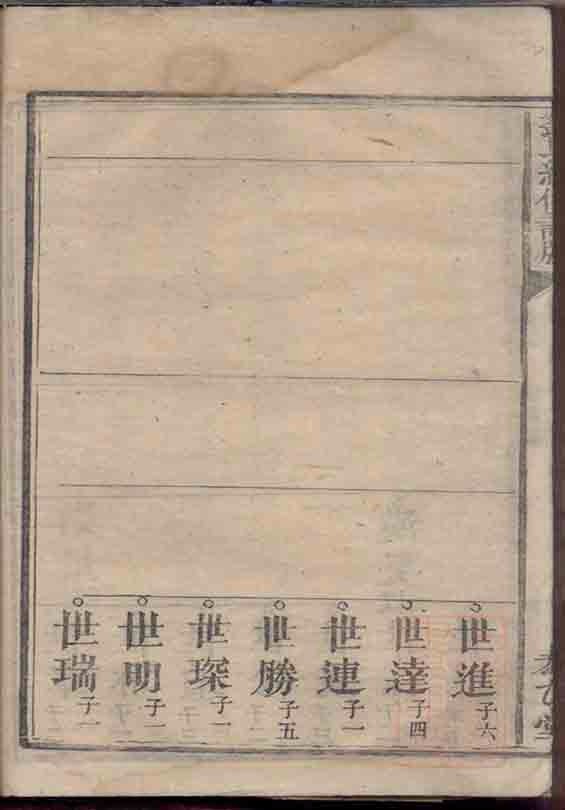 世進子六
世達子四
世連子一
世勝子五
世琛子一
世明子一
世瑞子一